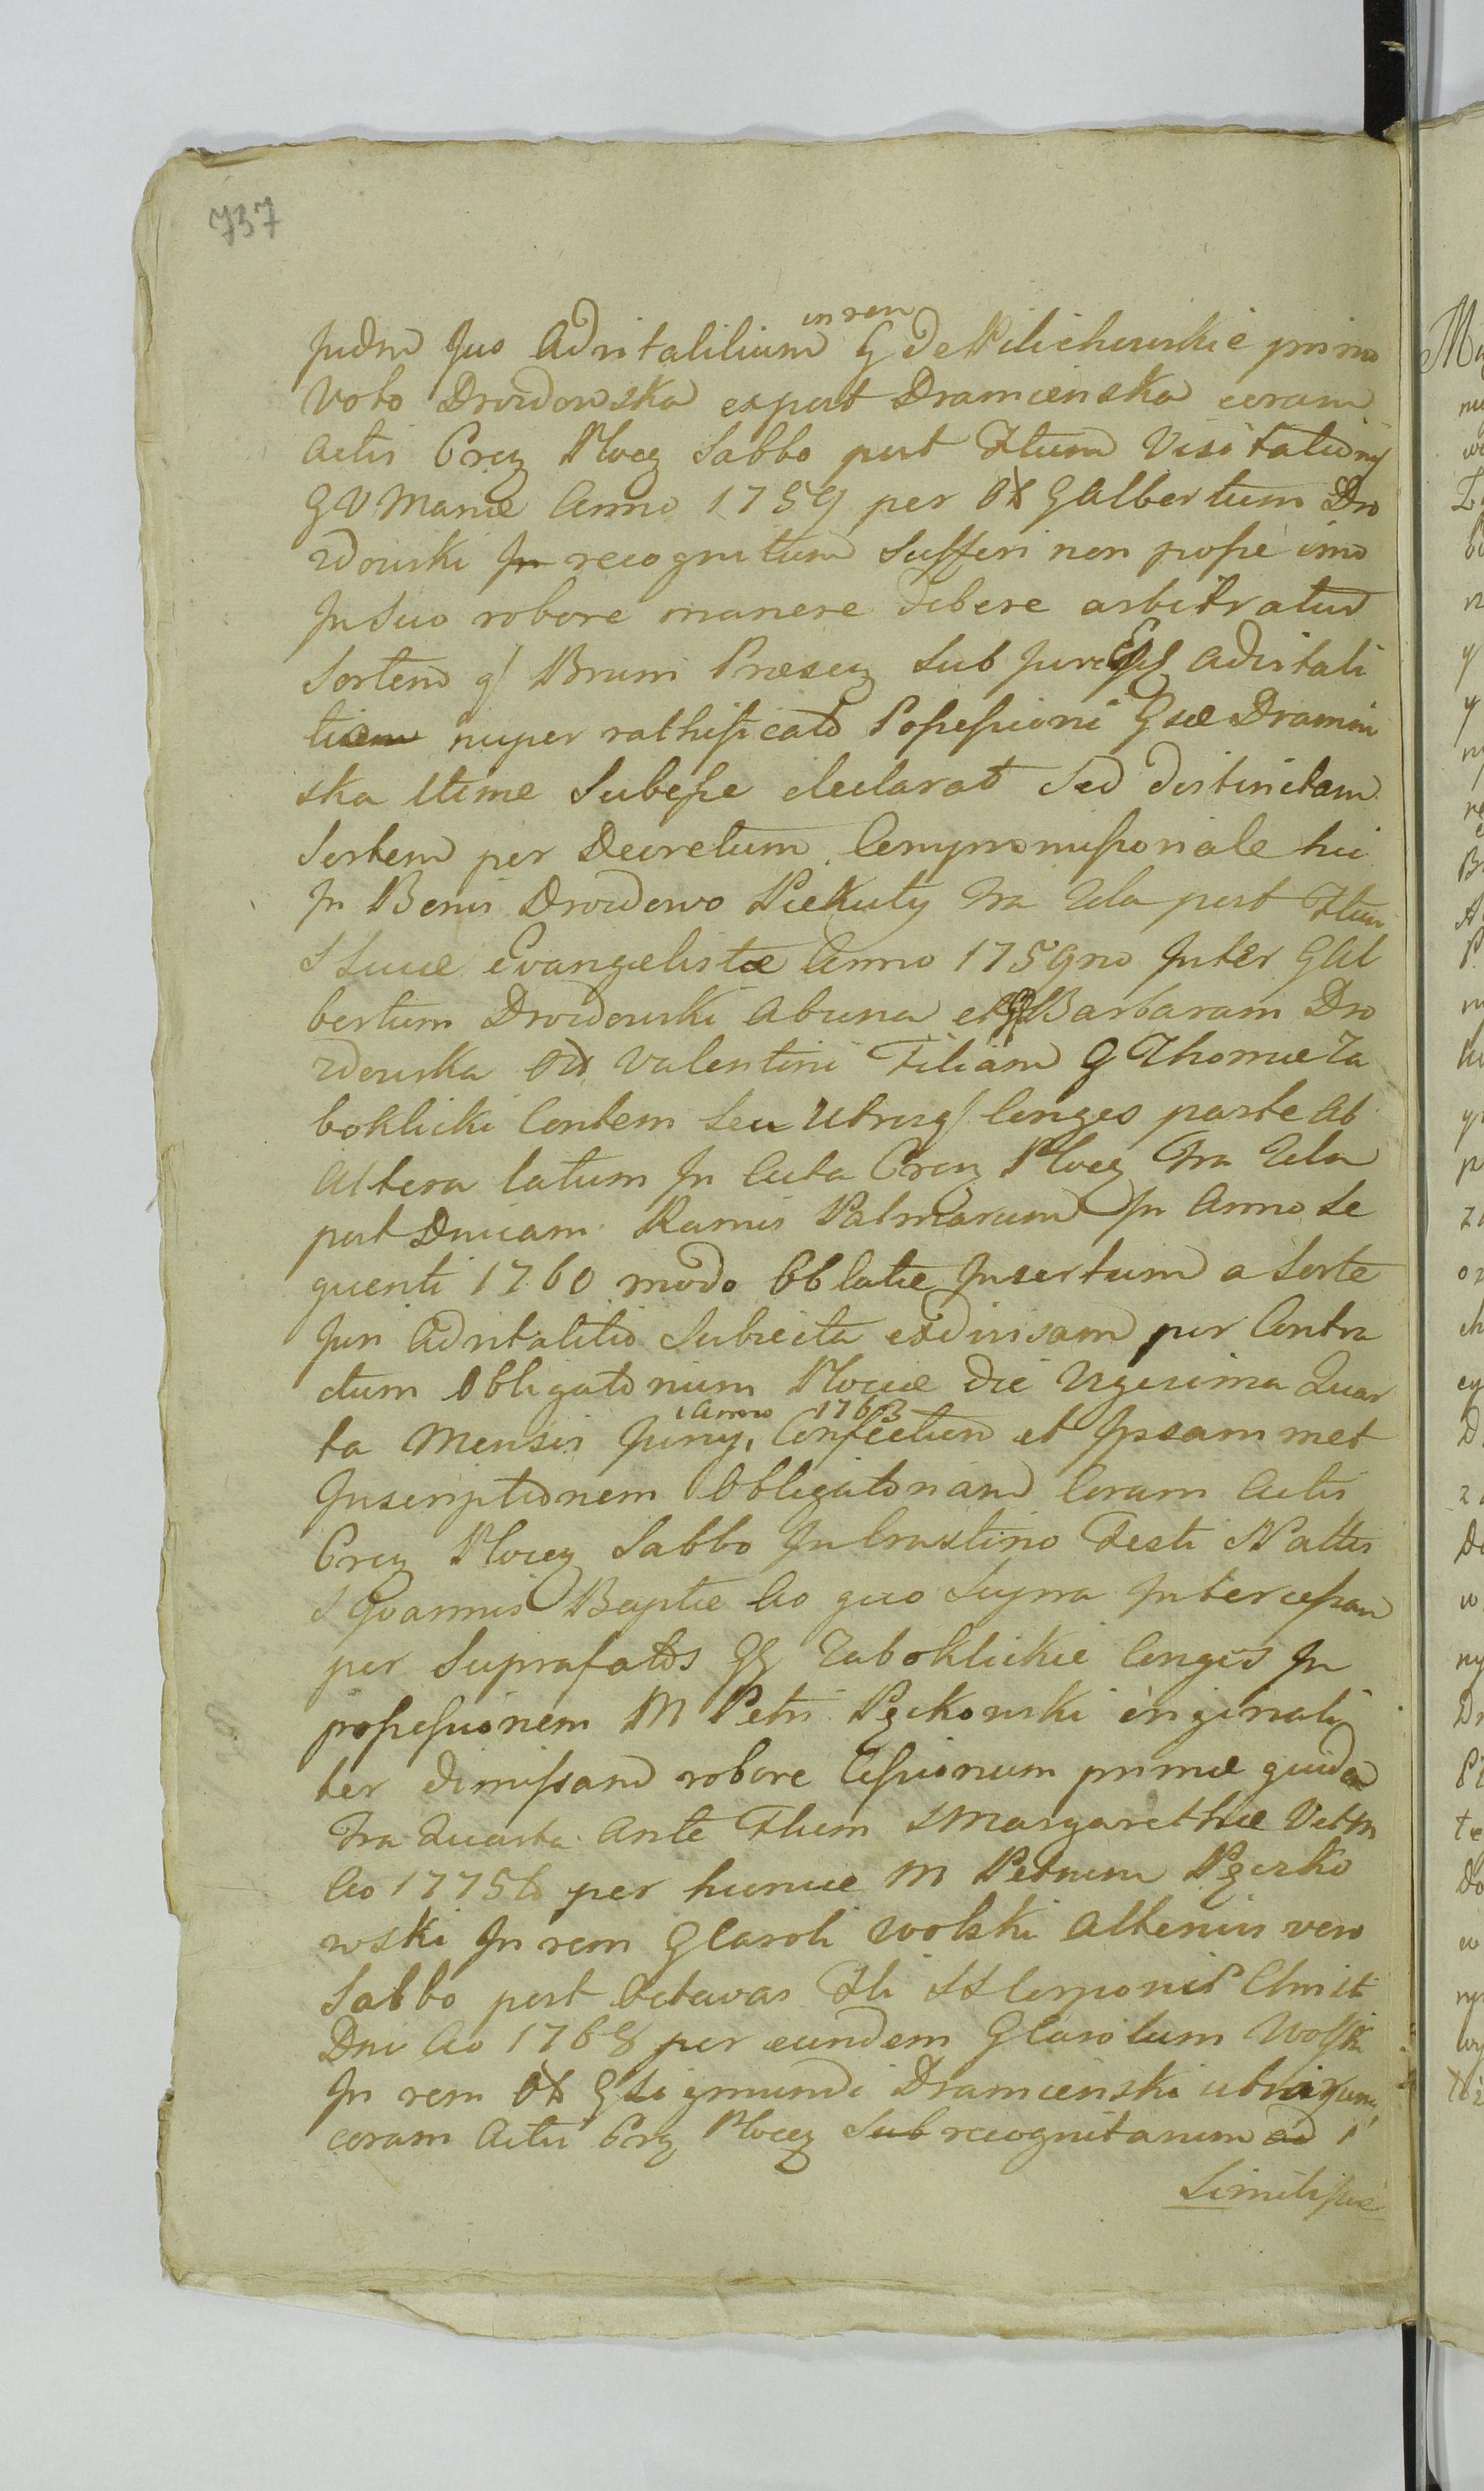 737
in rem
Judm Jus Advitalitium G de Pilichowskie primo
Voto Drozdowska expost Dramienska coram
Actis Crcz Plocg Sabbo post Ftum Visitationis
G V Mariæ Anno 1759 per Ol G Albertum Dro
zdowski In recognitum Sufferi non posse imo
In Suo robore manere debere arbitratur
Sortem q Bnum Præseg Sub jure advitali
tiem nuper rathificato Possessioni Gsæ Dramin
ska ltime Subesse declarat Sed distinctam
Sortem per Decretum Compromissoriale hic
In Bonis Drozdowo Piekuty fra 2da post Ftum
S Lucæ Evangelistæ Anno 1759no Inter G Al
bertum Drozdowski ab una et G Barbaram Dro
zdowska Ol Valentini Filiam G Thomæ Za
boklicki Contem Seu Utrosq Conges parte ab
Altera latum In Acta Crcz Plocg fra 2da
post Dnicam Ramis Palmarum In Anno Se
quenti 1760 modo Oblatæ Insertum a Sorte
Juri Advitalitio Subiecta exdivisam per Contra
ctum Obligatorium Plociæ die Vigesima Quar
Anno 1763
ta Mensis Juny Confectum et Ipsam met
Inscriptionem Obligatoriam Coram Actis
Crcz Plocg Sabbo In Crastino Festi Nattis
S Joannis Baptæ Ao quo Supra Intercessam
per Suprafatos GG Zaboklickie Conges In
possessionem M Petri Pgikowski originali
ter dimissam robore Cessionum primæ quidem
fra Quarta ante Ftum S Margarethæ Vet M
Ao 1775to per hunce M Petrum Pgizko
wski In rem G Caroli Wolski Alterius vero
Sabbo post Octavas Fti SS Corporis Christi
Dni Ao 1768 per eundem G Carolum Wolski
In rem Ol G Sigmundi Dramienski utrarumq
coram Actis Crcz Plocg Sub recognitarum ad
Similisque